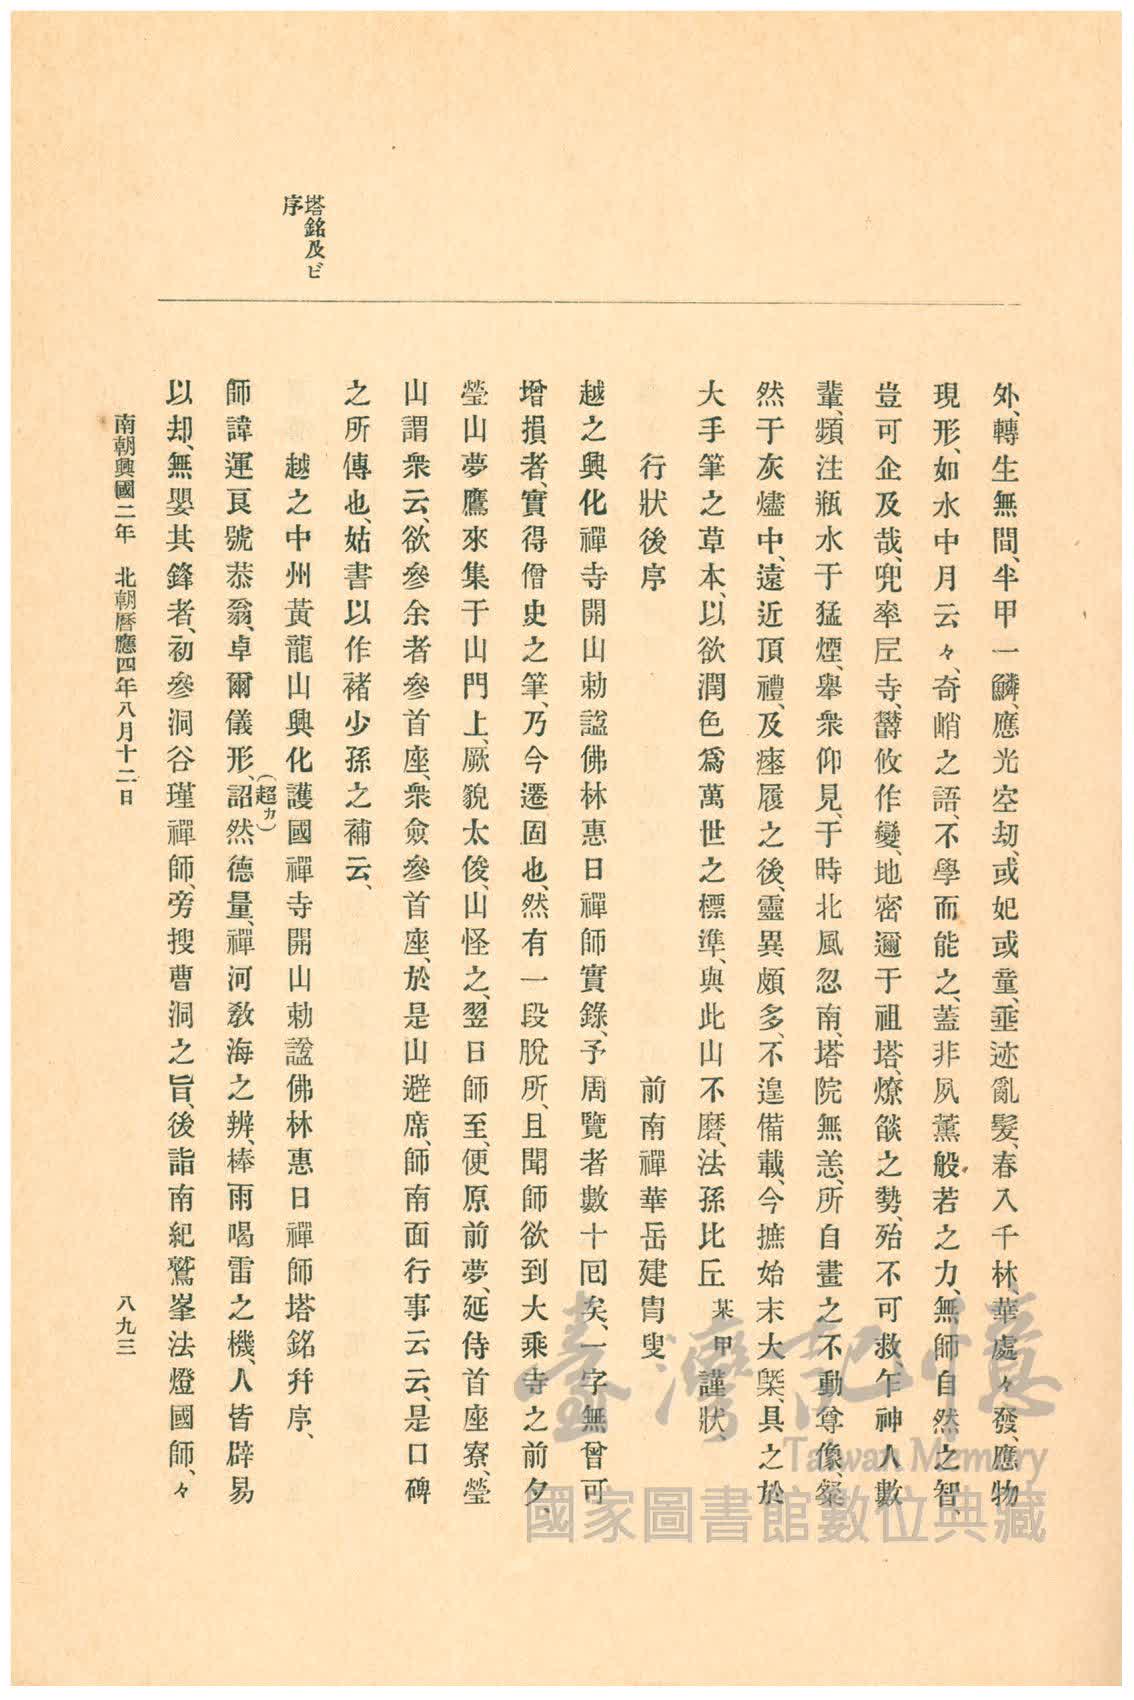 塔銘及ビ
序
外、轉生無間、半甲一鱗、應光空劫、或妃或童、垂迹亂髮、春入千林、華處々發、應物
現形、如水中月云々、奇峭之語、不學而能之、蓋非夙薰般若之力、無師自然之智、
豈可企及哉、兜率𡰱寺、欝攸作變、地密邇于祖塔、燎燄之勢、殆不可救、乍神人數
輩、頻注瓶水于猛煙、擧衆仰見、于時北風忽南、塔院無恙、所自畫之不動尊像、粲
然于灰燼中、遠近頂禮、及瘞履之後、靈異頗多、不遑備載、今摭始末大槩、具之於
大手筆之草本、以欲潤色爲萬世之標準、與此山不磨、法孫比丘某甲謹狀、
行狀後序　前南禪華岳建冑叟
越之興化禪寺開山勅諡佛林惠日禪師實錄、予周覽者數十回矣、一字無曾可
增損者、實得僧史之筆、乃今遷固也、然有一段脫所、且聞師欲到大乘寺之前夕、
瑩山夢鷹來集于山門上、厥貌太俊、山怪之、翌日師至、便原前夢、延侍首座寮、瑩
山謂衆云、欲參余者參首座、衆僉參首座、於是山避席、師南面行事云云、是口碑
之所傳也、姑書以作禇少孫之補云、
越之中州黃龍山興化護國禪寺開山勅諡佛林惠日禪師塔銘幷序、
師諱運良號恭翁、卓爾儀形、詔(超カ)然德量、禪河敎海之辨、棒雨喝雷之機、人皆辟易
以却、無嬰其鋒者、初參洞谷瑾禪師、旁搜曹洞之旨、後詣南紀鷲峯法燈國師、々
南朝興國二年　北朝曆應四年八月十二日
八九三
臺灣記憶
Taiwan Memory
國家圖書館數位典藏